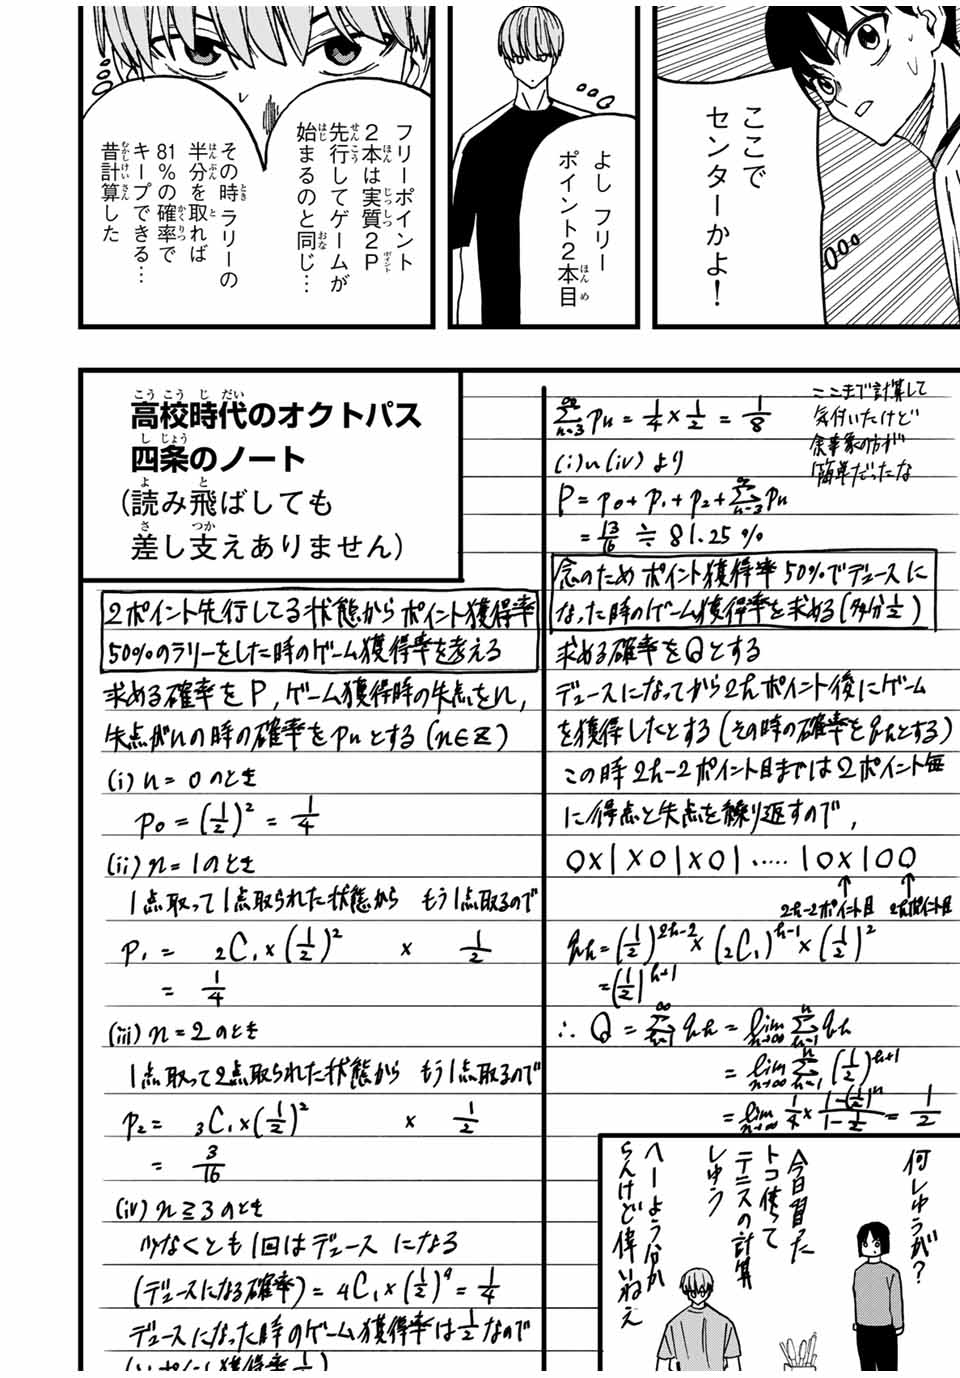 ここで
センターかよ！
よし フリー
ポイント２本目
フリーポイント
２本は実質２Ｐ
先行してゲームが
始まるのと同じ…
その時 ラリーの
半分を取れば
81％の確率で
キープできる…
昔計算した
高校時代のオクトパス
四条のノート
（読み飛ばしても
差し支えありません）
2ポイント先行してる状態からポイント獲得率
50%のラリーをした時のゲーム獲得率を考える
求める確率をP，ゲーム獲得時の失点をn，
失点がnの時の確率をpnとする（n∈Z）
(i) n = 0 のとき
p₀ = (1/2)² = 1/4
(ii) n = 1 のとき
1点取って1点取られた状態から もう1点取るので
p₁ = ₂C₁ × (1/2)² × 1/2
= 1/4
(iii) n = 2 のとき
1点取って2点取られた状態から もう1点取るので
p₂ = ₃C₁ × (1/2)² × 1/2
= 3/16
(iv) n ≧ 3 のとき
少なくとも1回はデュースになる
(デュースになる確率) = ₄C₁ × (1/2)⁴ = 1/4
デュースになった時のゲーム獲得率は1/2なので
∞Σn=3 pn = 1/4 × 1/2 = 1/8
ここまで計算して
気付いたけど
余事象の方が
簡単だったな
(i)〜(iv) より
P = p₀ + p₁ + p₂ + ∞Σn=3 pn
= 13/16 ≒ 81.25 %
念のためポイント獲得率50%でデュースに
なった時のゲーム獲得率を求める（多分1/2）
求める確率をQとする
デュースになってから2kポイント後にゲーム
を獲得したとする（その時の確率をqkとする）
この時2k-2ポイント目までは2ポイント毎
に得点と失点を繰り返すので，
0×1×01×01 ‥‥‥ 10×100
2k-2ポイント目 2kポイント目
qk = (1/2)^2k-2 × (₂C₁)^k-1 × (1/2)²
= (1/2)^k+1
∴ Q = ∞Σk=1 qk = lim n→∞ nΣk=1 qk
= lim n→∞ nΣk=1 (1/2)^k+1
= lim n→∞ 1/4 × 1-(1/2)^n / 1-1/2 = 1/2
何しゅうが？
今日習った
トコ使って
テニスの計算
しゅう
へーよう分か
らんけど偉いねえ